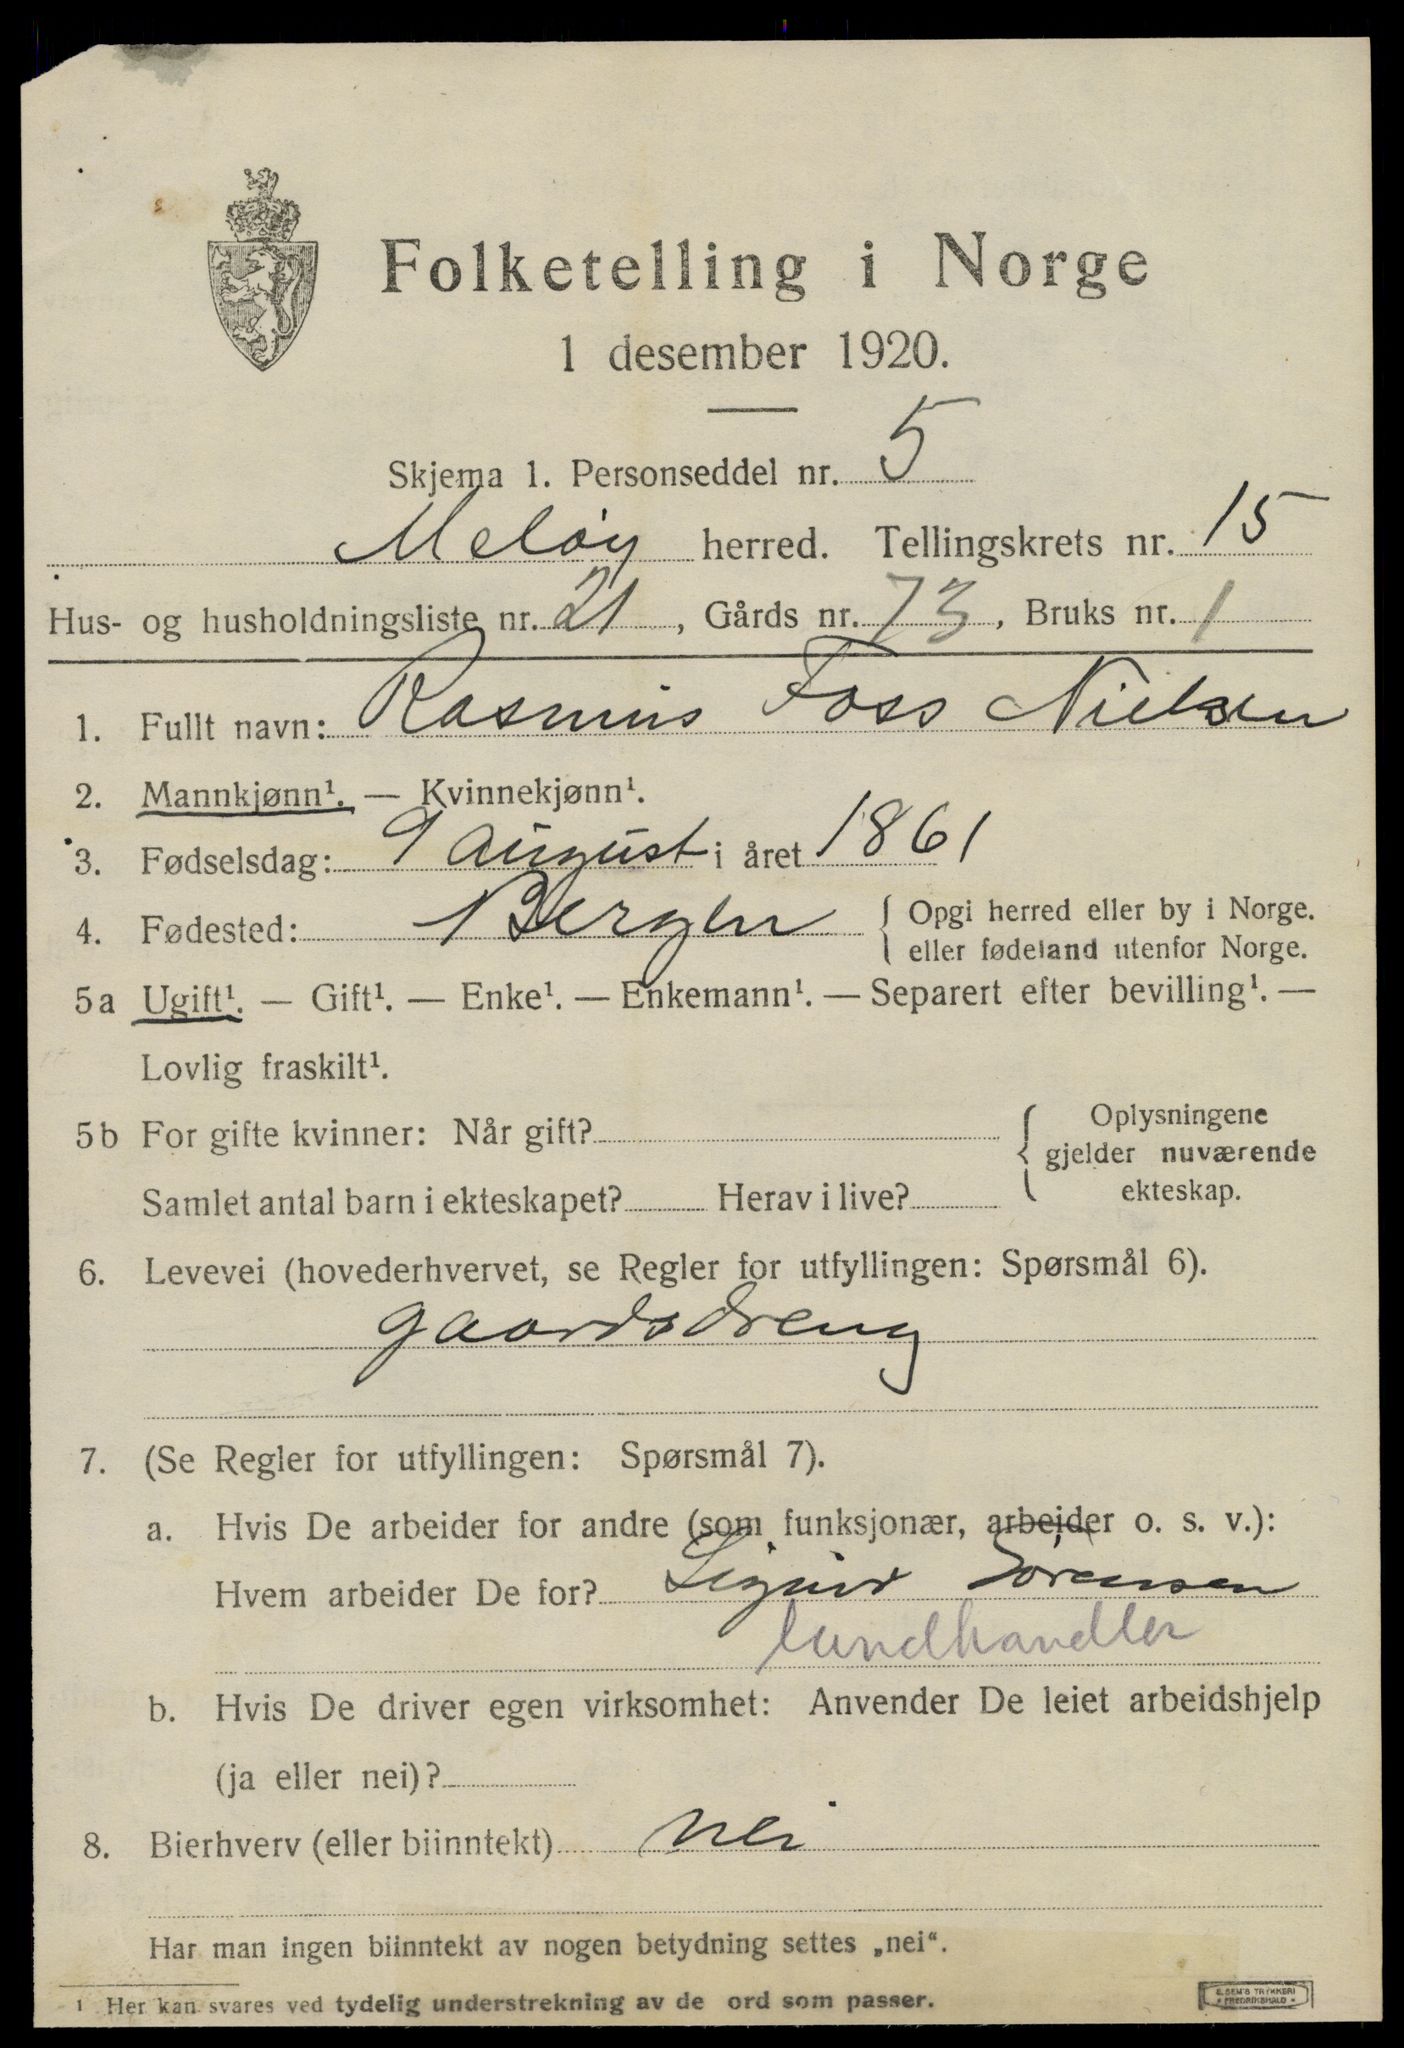 Folketelling i Norge
1 desember 1920.
Skjema 1. Personseddel nr. 5
Meløy herred. Tellingskrets nr. 15
Hus- og husholdningsliste nr. 21, Gårds nr. 73, Bruks nr. 1
1. Fullt navn: Rasmus Foss Nielsen
2. Mannkjønn¹. — Kvinnekjønn¹.
3. Fødselsdag: 9 august i året 1861
4. Fødested: Bergen { Opgi herred eller by i Norge.
eller fødeland utenfor Norge.
5a Ugift¹. — Gift¹. — Enke¹. — Enkemann¹. — Separert efter bevilling¹. —
Lovlig fraskilt¹.
5b For gifte kvinner: Når gift? { Oplysningene
gjelder nuværende
ekteskap.
Samlet antal barn i ekteskapet? Herav i live?
6. Levevei (hovederhvervet, se Regler for utfyllingen: Spørsmål 6).
gaardsdreng
7. (Se Regler for utfyllingen: Spørsmål 7).
a. Hvis De arbeider for andre (som funksjonær, arbeider o. s. v.):
Hvem arbeider De for? Sigurd Sørensen
lundhandler
b. Hvis De driver egen virksomhet: Anvender De leiet arbeidshjelp
(ja eller nei)?
8. Bierhverv (eller biinntekt) nei
Har man ingen biinntekt av nogen betydning settes „nei“.
¹ Her kan svares ved tydelig understrekning av de ord som passer.
E. SEM'S TRYKKERI
FREDRIKSHALD